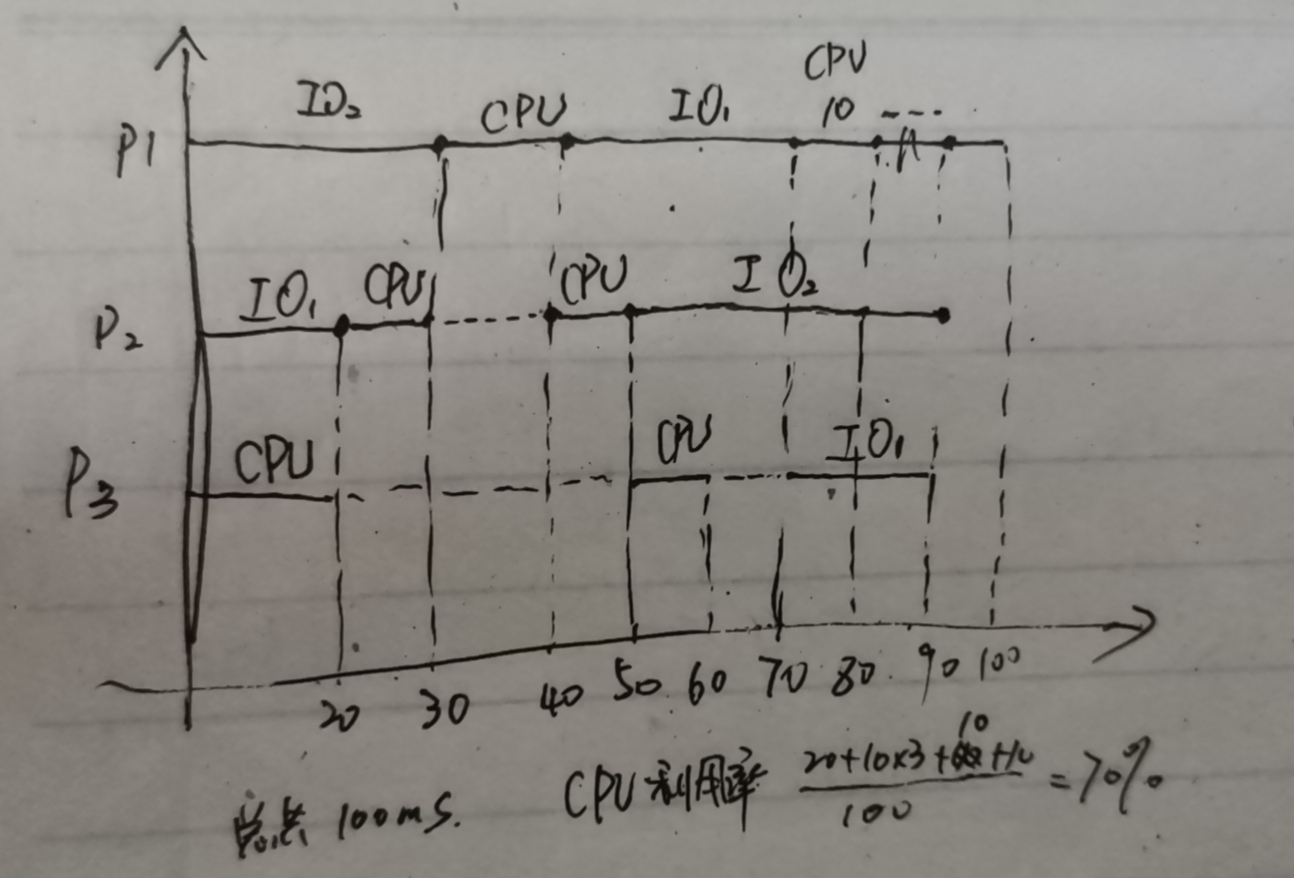 CPU
IO₂ CPU IO₁ 10
P1
IO₁ CPU CPU IO₂
P₂
CPU CPU IO₁
P3
20 30 40 50 60 70 80 90 100
10
总共 100ms. CPU利用率 20+10×3+ +10 / 100 = 70%